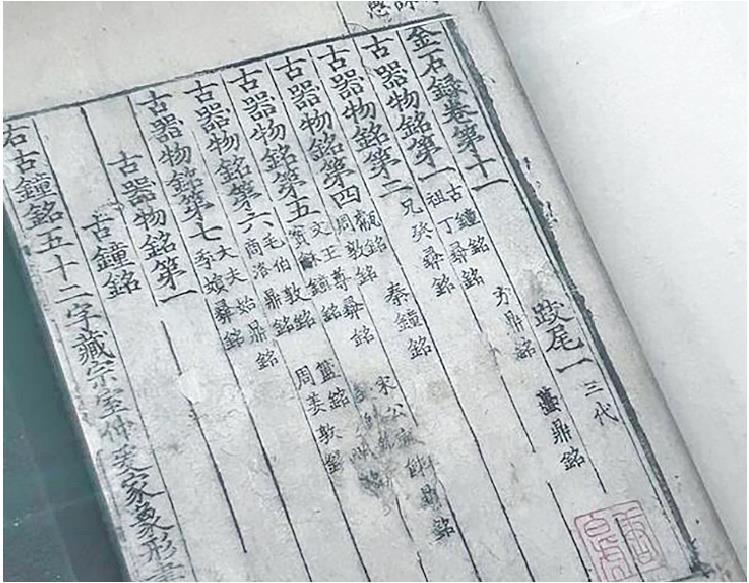 金石錄卷第十一 跋尾一 三代
古器物銘第一 古鐘銘 祖丁彝銘 方鼎銘 蠆鼎銘
古器物銘第二 兄癸彝銘 秦鐘銘 宋公 鼎銘
古器物銘第四 甗銘 周敦銘
古器物銘第五 文王尊彝銘 簠銘 周姜敦銘
古器物銘第六 毛伯敦銘 商洛鼎銘
古器物銘第七 大夫始鼎銘 季嬪彝銘
古器物銘第一
古鐘銘
右古鐘銘五十二字藏宗室仲爰家象形